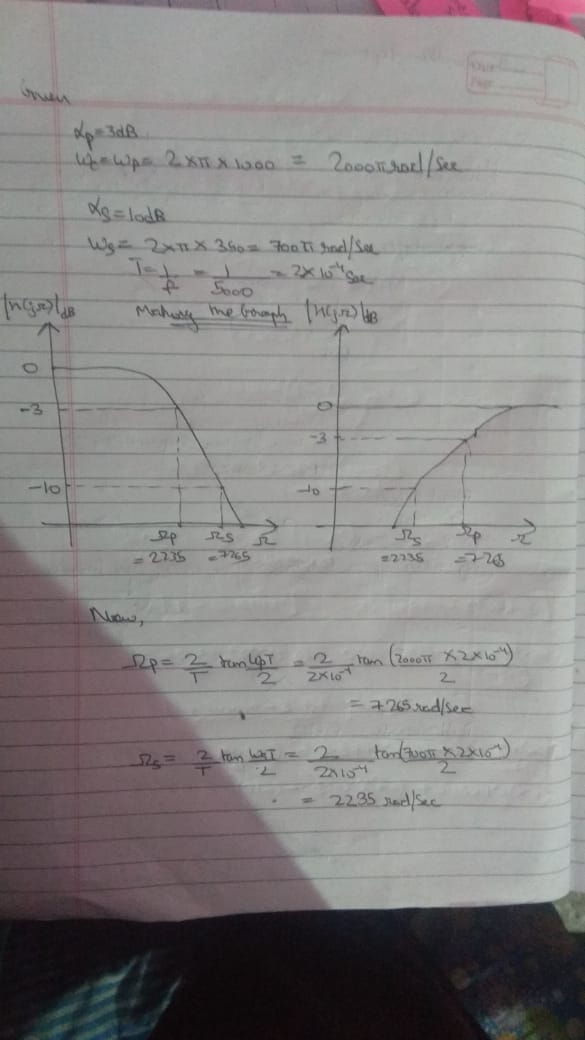 Given
αp=3dB
ωc=ωp= 2×π×1000 = 2000π rad/sec
αs=10dB
ωs= 2×π×350= 700π rad/sec
T=1/f = 1/5000 = 2×10⁻⁴ Sec
Making the Graph
|H(jΩ)|dB
0
-3
-10
Ωp Ωs Ω
=2235 =7265
|H(jΩ)|dB
0
-3
-10
Ωs Ωp Ω
=2235 =7265
Now,
Ωp= 2/T tan ωpT/2 = 2/2×10⁻⁴ tan (2000π ×2×10⁻⁴)/2
= 7265 rad/sec
Ωs= 2/T tan ωsT/2 = 2/2×10⁻⁴ tan(700π ×2×10⁻⁴)/2
= 2235 rad/sec